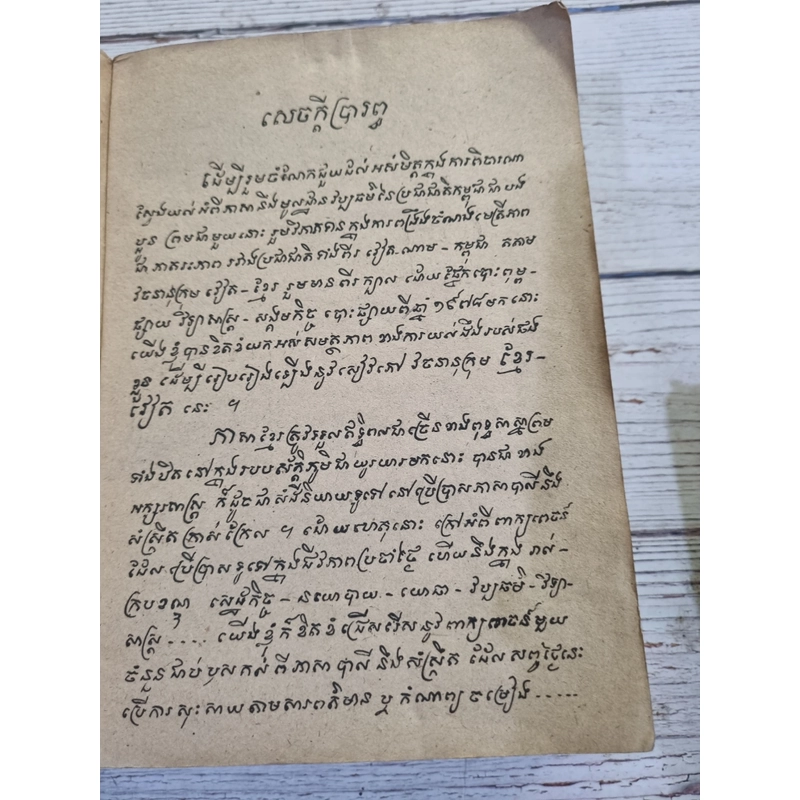 សេចក្ដីប្រារព្ធ
ដើម្បីរួមចំណែកជួយដល់អស់មិត្តក្នុងការពិចារណា
ស្វែងយល់អំពីភាសានិងមូលដ្ឋានវប្បធម៌នៃប្រជាជាតិកម្ពុជាជាបង
ប្អូន ព្រមជាមួយនោះ រួមវិភាគទានក្នុងការពង្រឹងចំណងមេត្រីភាព
ជា ភាតរភាព រវាងប្រជាជាតិទាំងពីរ វៀត-ណាម - កម្ពុជា តតាម
វចនានុក្រម វៀត - ខ្មែរ រួមមានពីរក្បាល ដោយផ្នែកបោះពុម្ព-
ផ្សាយ វិទ្យាសាស្ត្រ - សង្គមកិច្ច បោះផ្សាយពីឆ្នាំ ១៩៧៨មកនោះ
យើងខ្ញុំបានខិតខំយកអស់សមត្ថភាព ខាងការយល់ដឹងរបស់ផង
ខ្លួន ដើម្បីរៀបរៀងឡើងនូវសៀវភៅ វចនានុក្រុម ខ្មែរ -
វៀត នេះ ។
ភាសាខ្មែរត្រូវទទួលឥទ្ធិពលជាច្រើនខាងពុទ្ធសាស្នាព្រម
ទាំងឋិតនៅក្នុងរបបសក្តិភូមិជាយូរយារមកនោះ បានជា ខាង
អក្សរសាស្ត្រ ក៏ដូចជាសំដីនិយាយទូទៅនៅប្រើប្រាសភាសាបាលីនឹង
សំស្រ្កឹតក្រាស់ក្រែល ។ ដោយហេតុនោះ ក្រៅអំពីពាក្យពេចន៍
ដែលប្រើប្រាសទូទៅក្នុងជីវភាពប្រចាំថ្ងៃ ហើយនិងក្នុង រាស់-
គ្របខណ្ឌ សេដ្ឋកិច្ច - នយោបាយ - យោធា - វប្បធម៌ - វិទ្យា-
សាស្ត្រ..... យើងខ្ញុំក៏ខិតខំជ្រើសរើសនូវពាក្យពេចន៍មួយ
ចំនួនជាប់ឫសគល់ពីភាសាបាលីនិងសំស្រ្កឹត ដែលសព្វថ្ងៃនេះ
ប្រើការសុះសាយតាមសារពត៌មាន ឬ កំណាព្យ ចម្រៀង.....